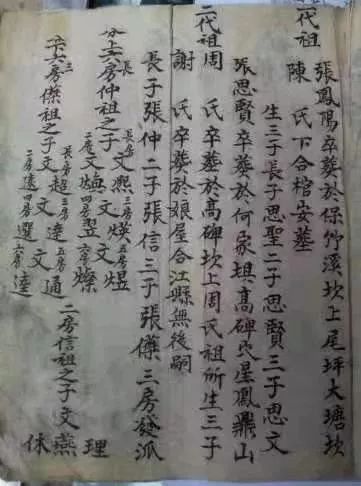 一代祖 張鳳陽卒葬於保竹溪坎上尾坪大塘坎
陳氏下合棺安墓
生三子長子思聖二子思賢三子思文
張思賢卒葬於何家坦高碑民星鳳鼎山
二代祖周氏卒墓於高碑坎上周氏祖所生三子
謝氏卒葬於娘屋合江縣無後嗣
長子張仲二子張信三子張傑三房發派
分上六房仲祖之子長房文熙三房文煐五房文煜
二房文煥四房文翌六房文燦
下六房傑祖之子長房文超三房文達五房文通
二房遠四房選六房達
二房信祖之子文理
燕
休